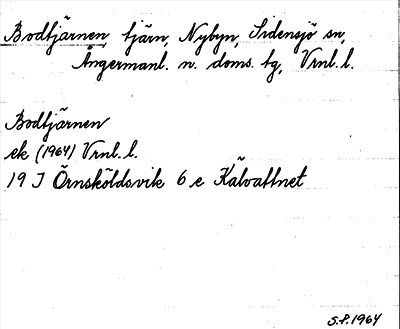 Bodtjärnen, tjärn, Nybyn, Sidensjö sn,
Ångermanl. n. doms. tg, Vrnl. l.
Bodtjärnen
ek (1964) Vrnl. l.
19 J Örnsköldsvik 6 e Kälvattnet
S.P. 1964